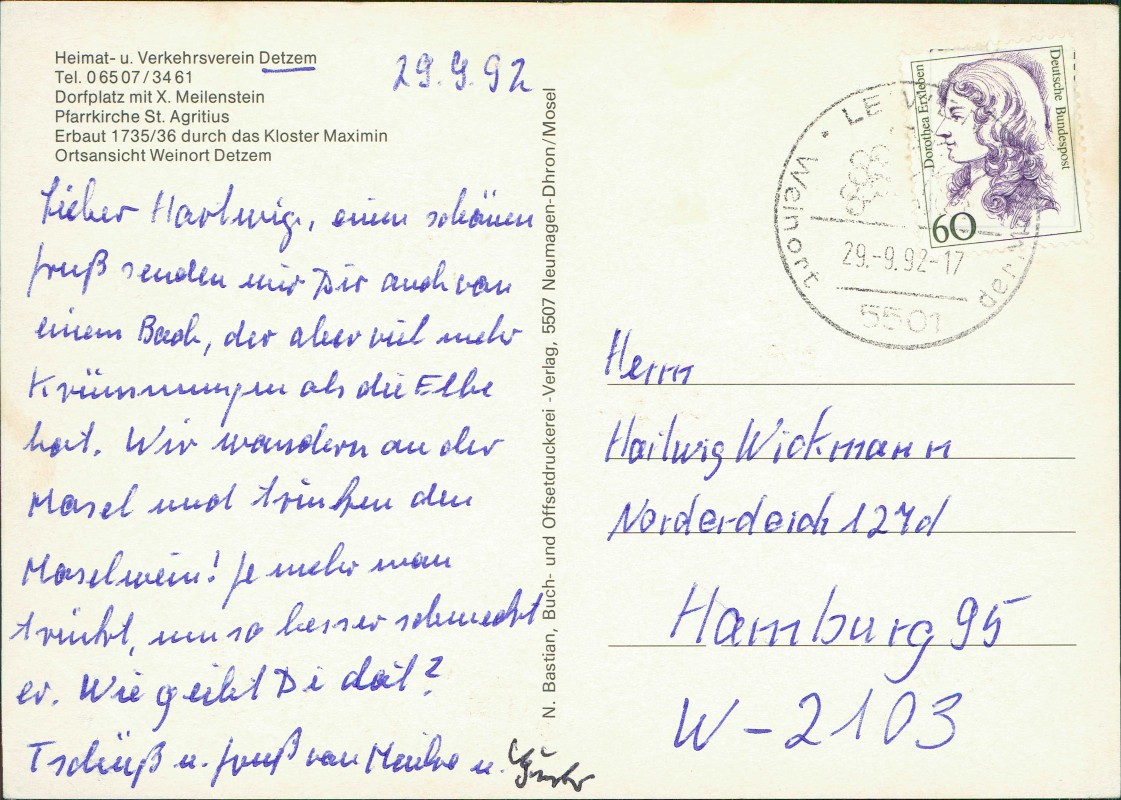 Heimat- u. Verkehrsverein Detzem
Tel. 06507/3461
Dorfplatz mit X. Meilenstein
Pfarrkirche St. Agritius
Erbaut 1735/36 durch das Kloster Maximin
Ortsansicht Weinort Detzem
29.9.92
Lieber Hartwig, einen schönen
Gruß senden wir Dir auch von
einem Bach, der aber viel mehr
Krümmungen als die Elbe
hat. Wir wandern an der
Mosel und trinken den
Moselwein! Je mehr man
trinkt, um so besser schmeckt
er. Wie geiht Di dat?
Tschüß u. Gruß von Meike u.
N. Bastian, Buch- und Offsetdruckerei -Verlag, 5507 Neumagen-Dhron/Mosel
Deutsche Bundespost
Dorothea Erxleben
60
Weinort
29.-9.92-17
5501
Herrn
Hartwig Wickmann
Norderdeich 127d
Hamburg 95
W-2103